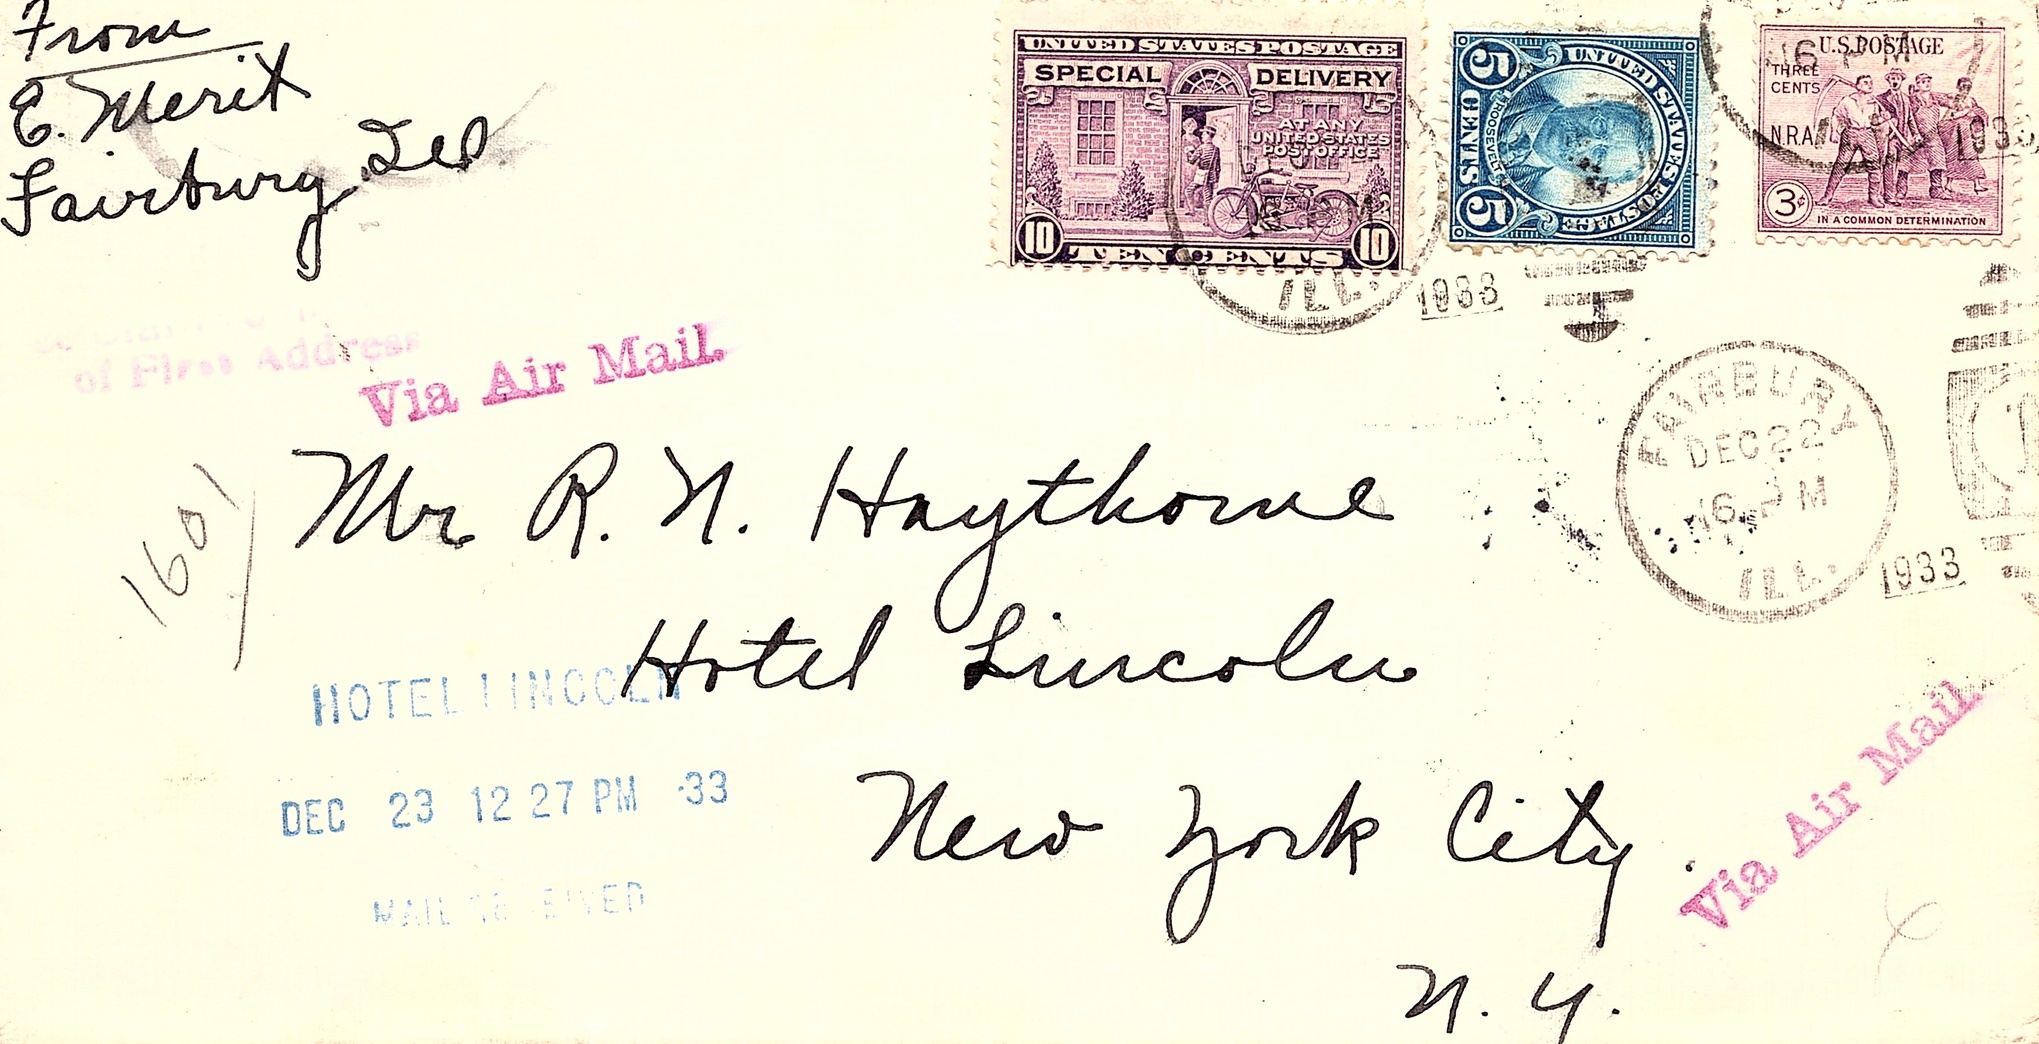 From
E. Merit
Fairbury Ill
UNITED STATES POSTAGE
SPECIAL DELIVERY
AT ANY
UNITED STATES
POST OFFICE
10 TEN CENTS 10
ILL. 1933
UNITED STATES POSTAGE
ROOSEVELT
5 CENTS 5
U.S. POSTAGE
THREE
CENTS
N.R.A.
3¢
IN A COMMON DETERMINATION
6 PM
1933
of First Address
Via Air Mail
FAIRBURY
DEC 22
6 PM
ILL.
1933
1601
Mr R. N. Haythorne
Hotel Lincoln
New York City.
N. Y.
HOTEL LINCOLN
DEC 23 12 27 PM '33
MAIL RECEIVED
Via Air Mail